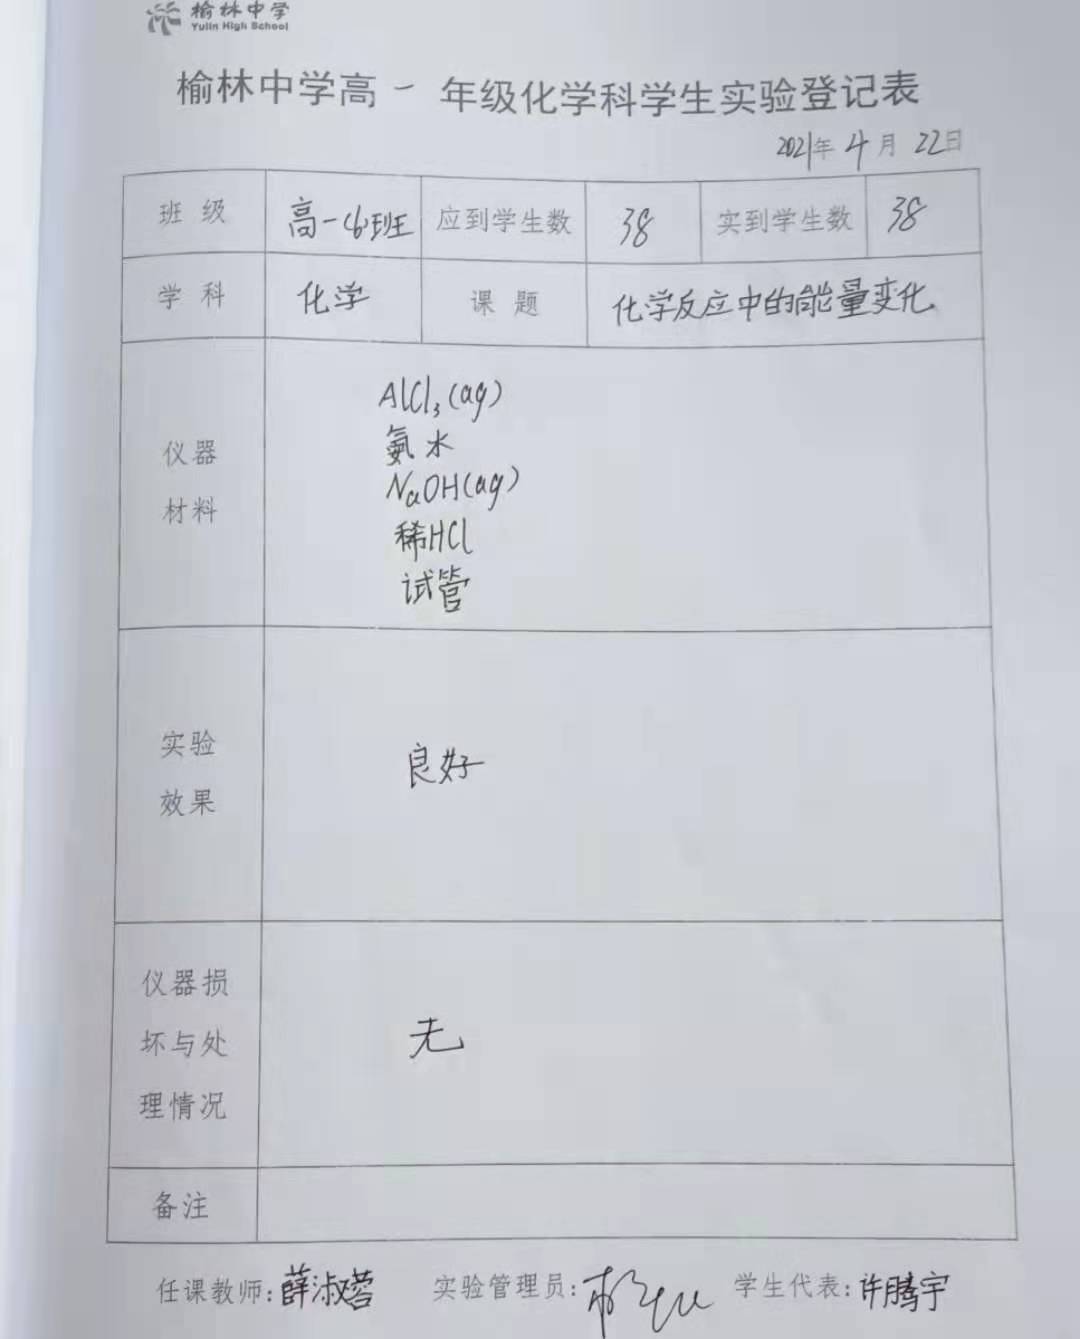 榆林中学
Yulin High School
榆林中学高一年级化学科学生实验登记表
2021年4月22日
班级 高一(6)班 应到学生数 38 实到学生数 38
学科 化学 课题 化学反应中的能量变化
仪器
材料
AlCl₃(aq)
氨水
NaOH(aq)
稀HCl
试管
实验
效果
良好
仪器损
坏与处
理情况
无
备注
任课教师:薛淑蓉 实验管理员: 学生代表:许腾宇